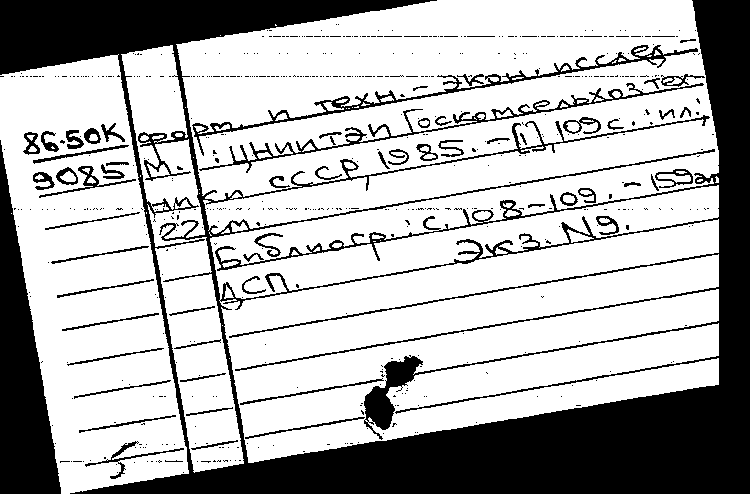 86-50К форм. и техн.-экон. исслед.-
9085 М.: ЦНИИТЭИ Госкомсельхозтех-
ники СССР, 1985. - [1], 109 с. : ил.;
22 см.
Библиогр.: с. 108-109. - 159 эк
ДСП. Экз. N9.
5